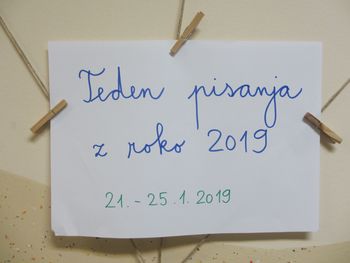 Teden pisanja
z roko 2019
21. - 25. 1. 2019